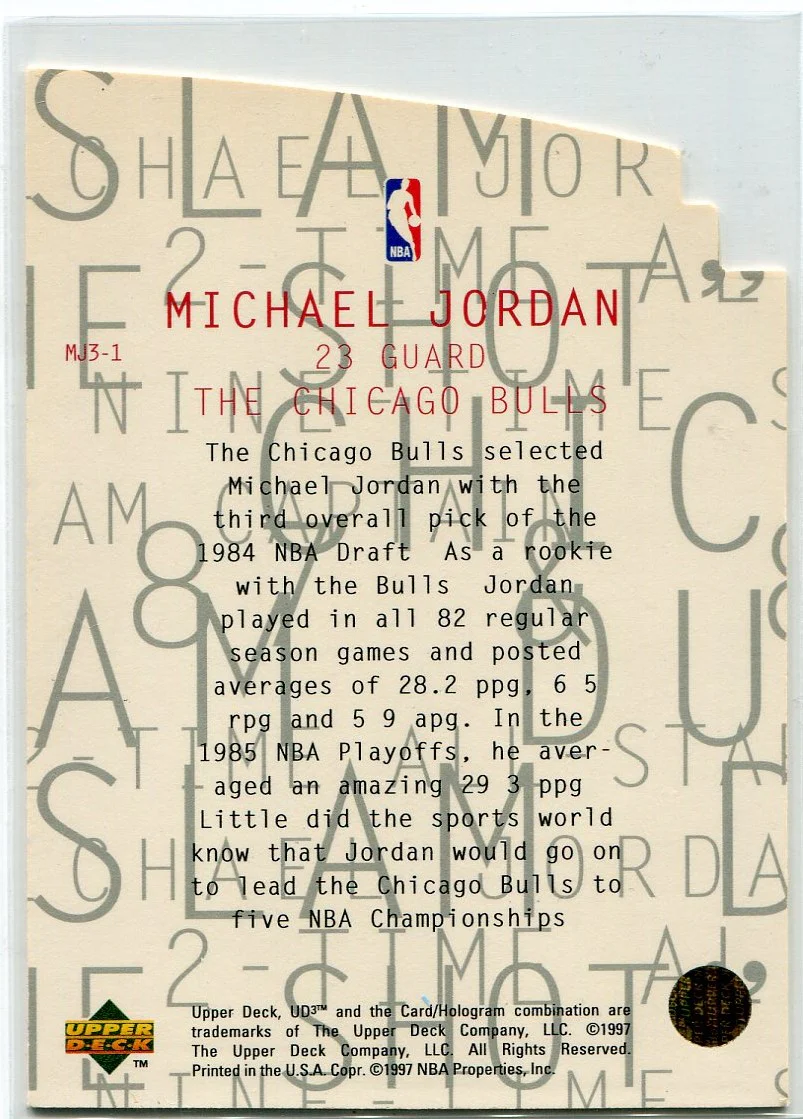 SLAM
CHAEL JOR
NBA
2-TIME AL
HE SHOT,
MICHAEL JORDAN
MJ3-1
23 GUARD
THE CHICAGO BULLS
NINE-TIME S
CHIC
AM CAPTAIN
8 &
The Chicago Bulls selected
Michael Jordan with the
third overall pick of the
1984 NBA Draft As a rookie
with the Bulls Jordan
played in all 82 regular
season games and posted
averages of 28.2 ppg, 6 5
rpg and 5 9 apg. In the
1985 NBA Playoffs, he aver-
aged an amazing 29 3 ppg
Little did the sports world
know that Jordan would go on
to lead the Chicago Bulls to
five NBA Championships
AM DU
2-TIME ALL-STA
SLAM D
CHAEL JORDA
2-TIME AL
HE SHOT,
UPPER
D·E·C·K
TM
Upper Deck, UD3™ and the Card/Hologram combination are
trademarks of The Upper Deck Company, LLC. ©1997
The Upper Deck Company, LLC. All Rights Reserved.
Printed in the U.S.A. Copr. ©1997 NBA Properties, Inc.
UPPER DECK
NINE-TIME S